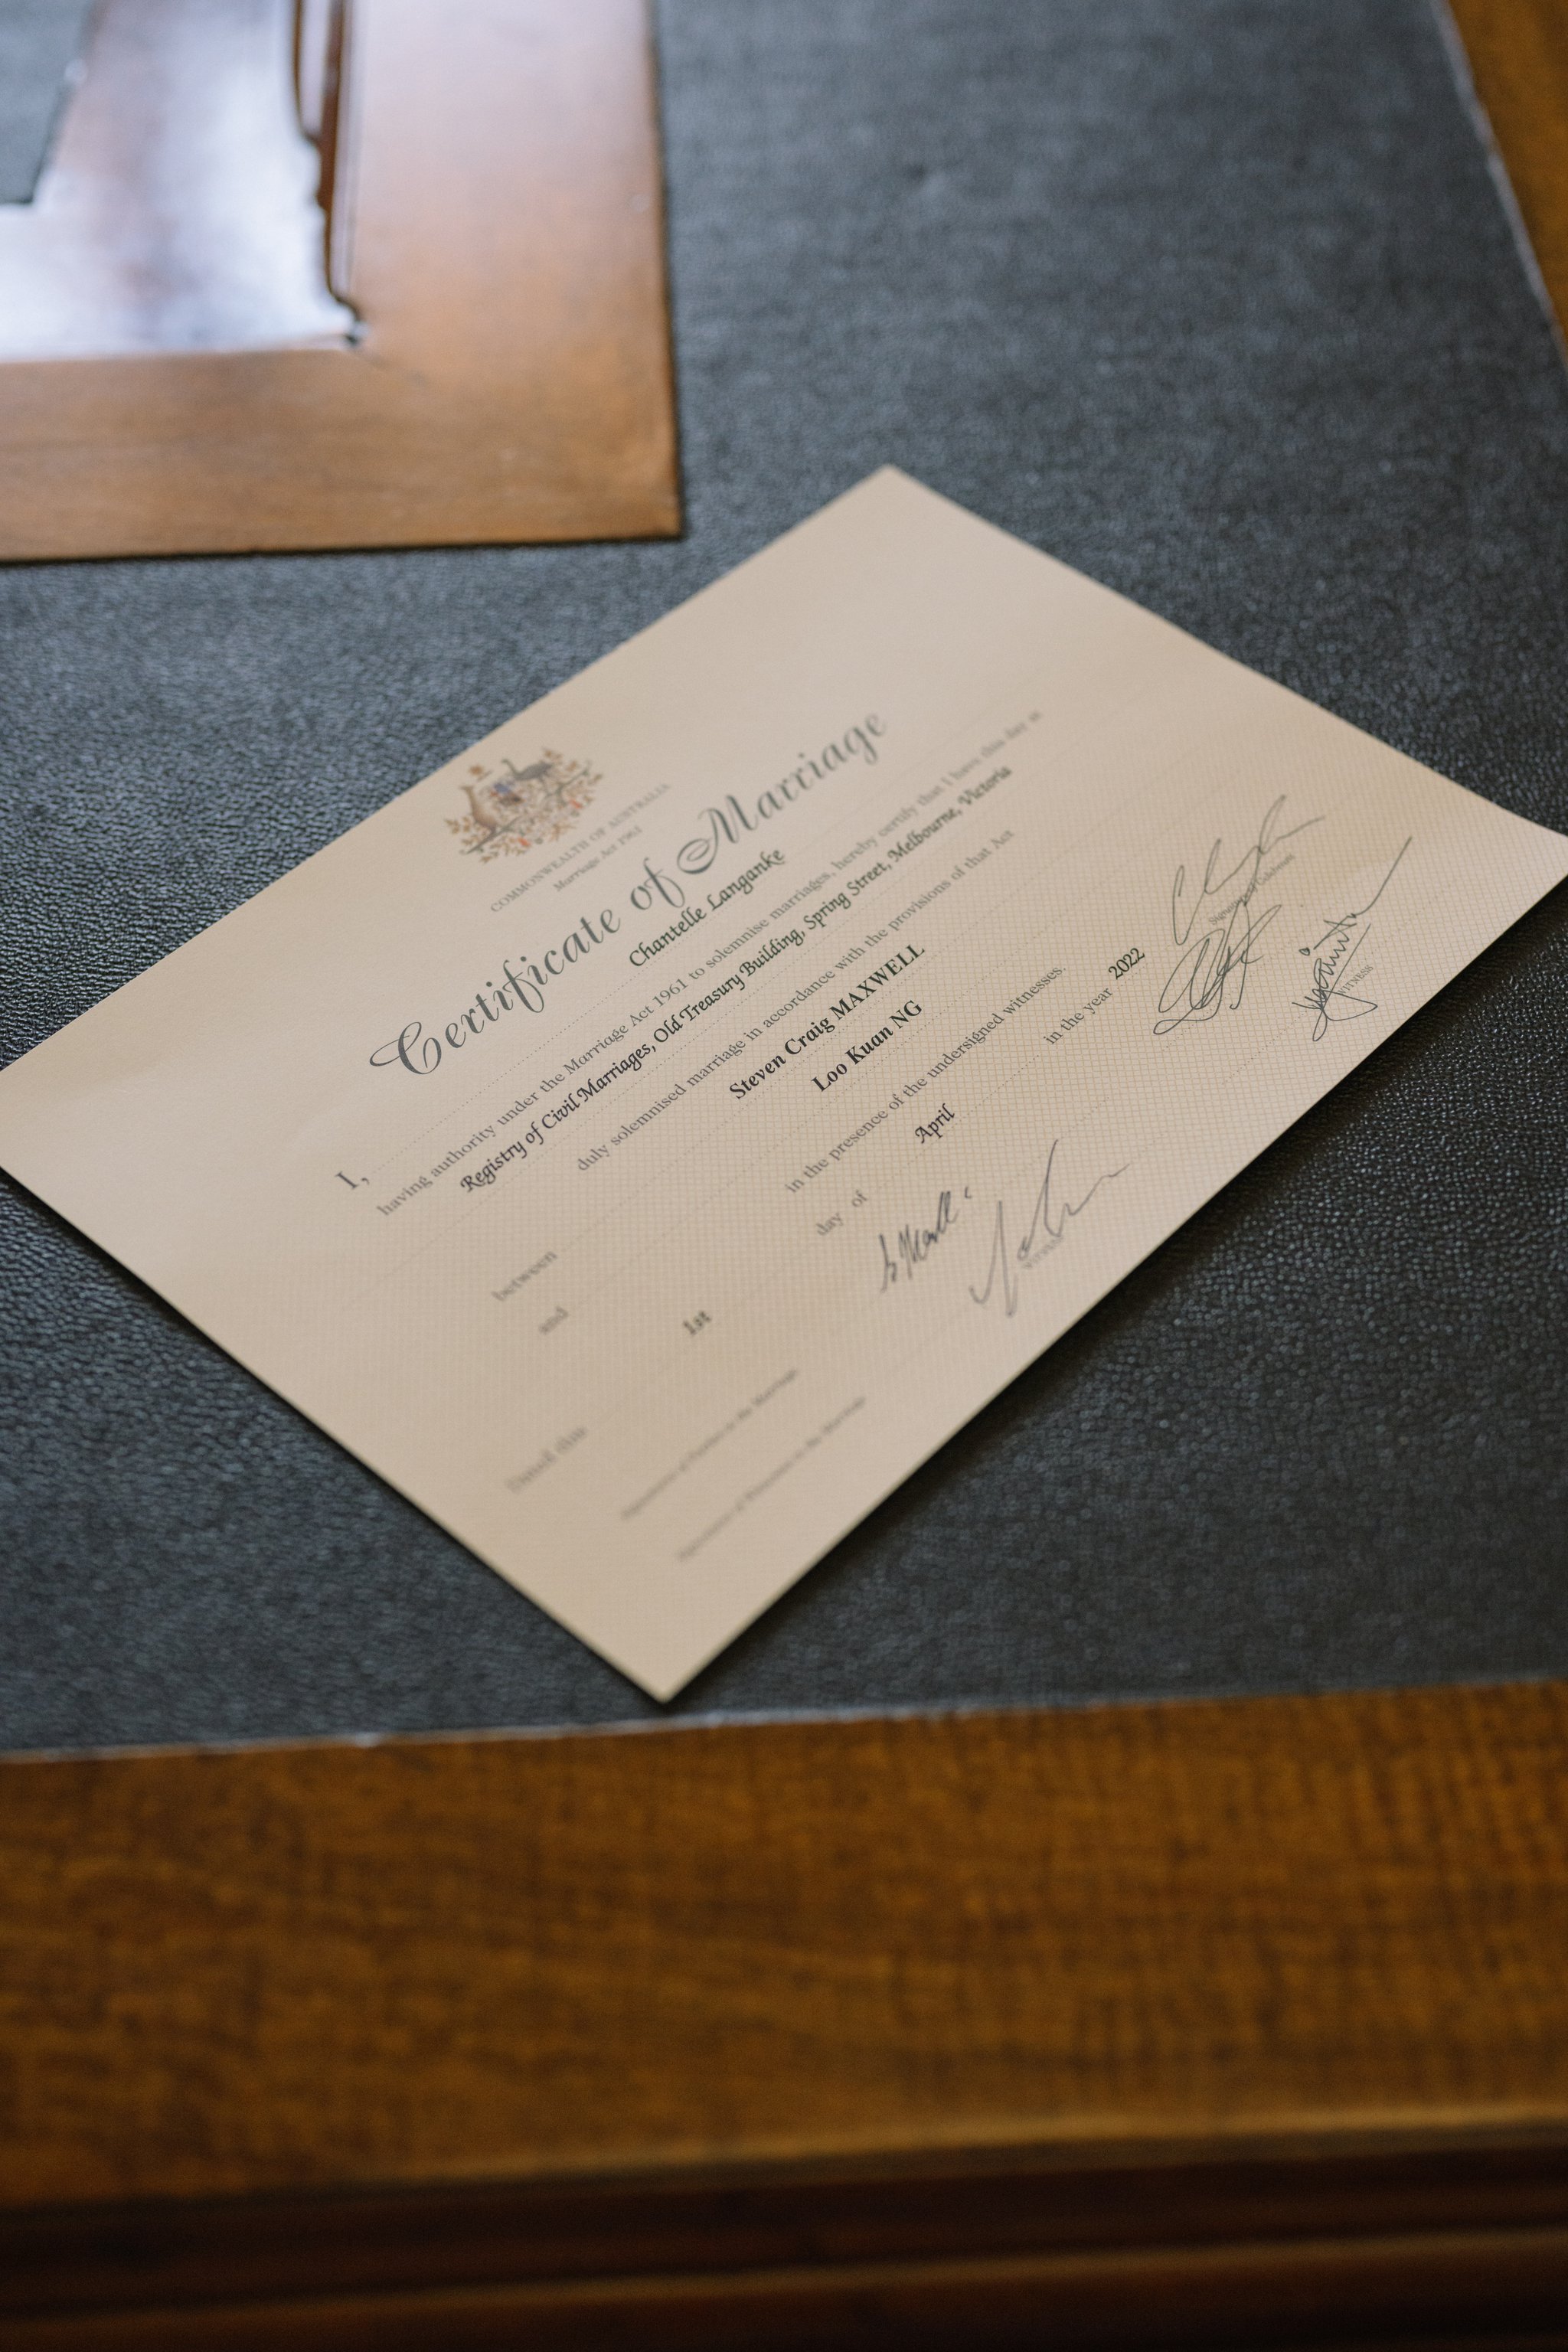 COMMONWEALTH OF AUSTRALIA
Marriage Act 1961
Certificate of Marriage
I, Chantelle Langanke
having authority under the Marriage Act 1961 to solemnise marriages, hereby certify that I have this day at
Registry of Civil Marriages, Old Treasury Building, Spring Street, Melbourne, Victoria
duly solemnised marriage in accordance with the provisions of that Act
between Steven Craig MAXWELL
and Loo Kuan NG
in the presence of the undersigned witnesses.
Dated this 1st day of April in the year 2022
Signature of Parties to the Marriage
Signature of Celebrant
Signature of Witnesses to the Marriage
WITNESS
WITNESS